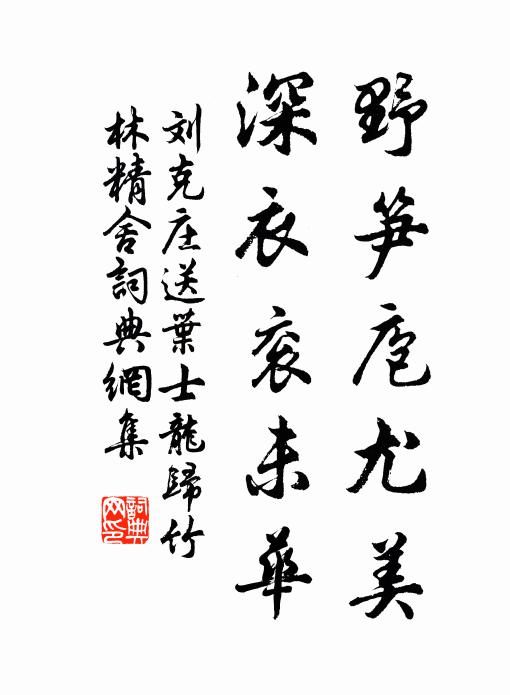 野笋庖尤美
深衣衮未華
刘克庄送葉士龍歸竹
林精舍詞典網集
詞典
网印